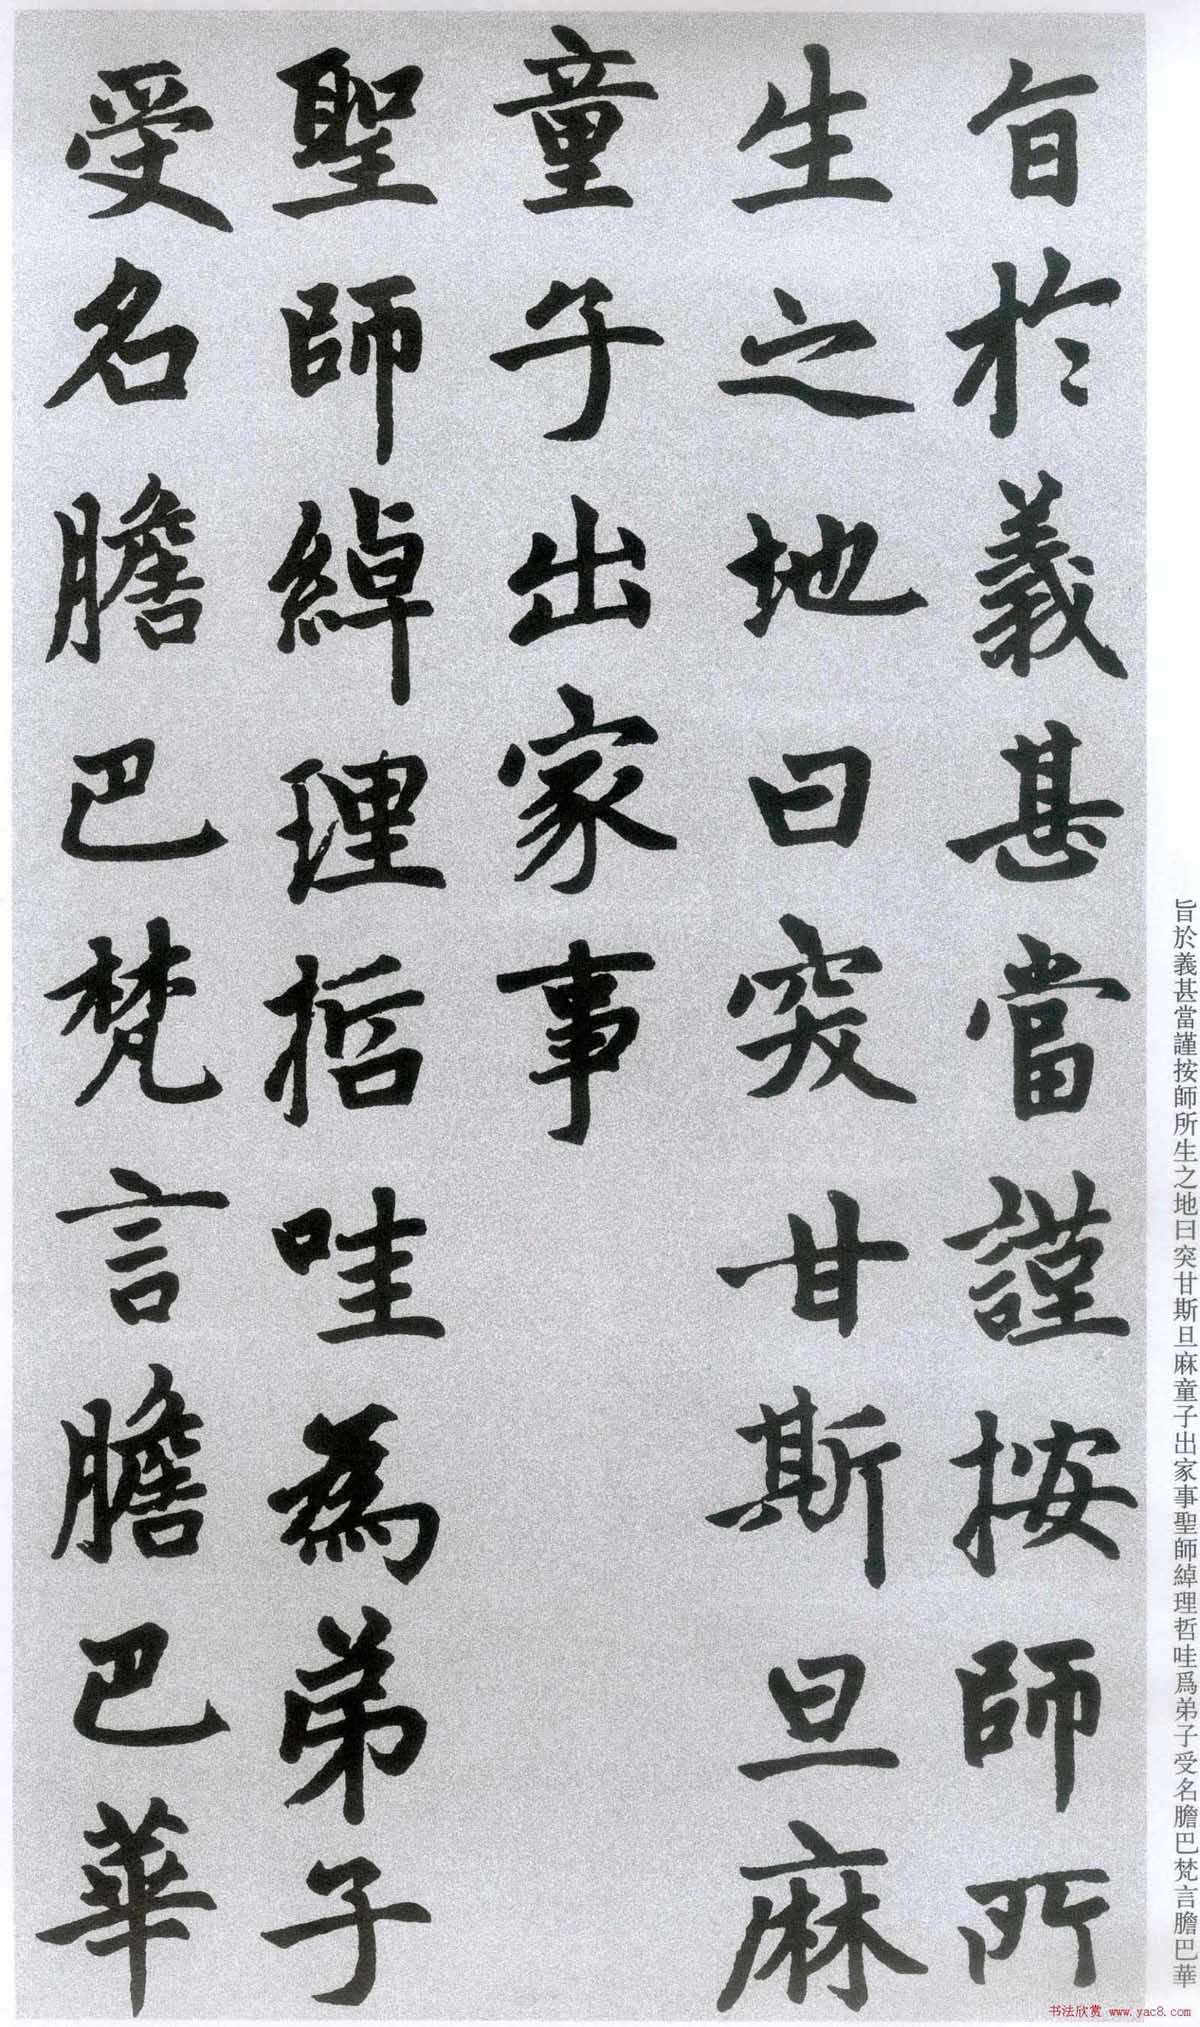 旨於義甚當謹按師所
生之地曰突甘斯旦麻
童子出家事
聖師綽理哲哇為弟子
受名膽巴梵言膽巴華
旨於義甚當謹按師所生之地曰突甘斯旦麻童子出家事聖師綽理哲哇爲弟子受名膽巴梵言膽巴華
书法欣赏 www.yac8.com